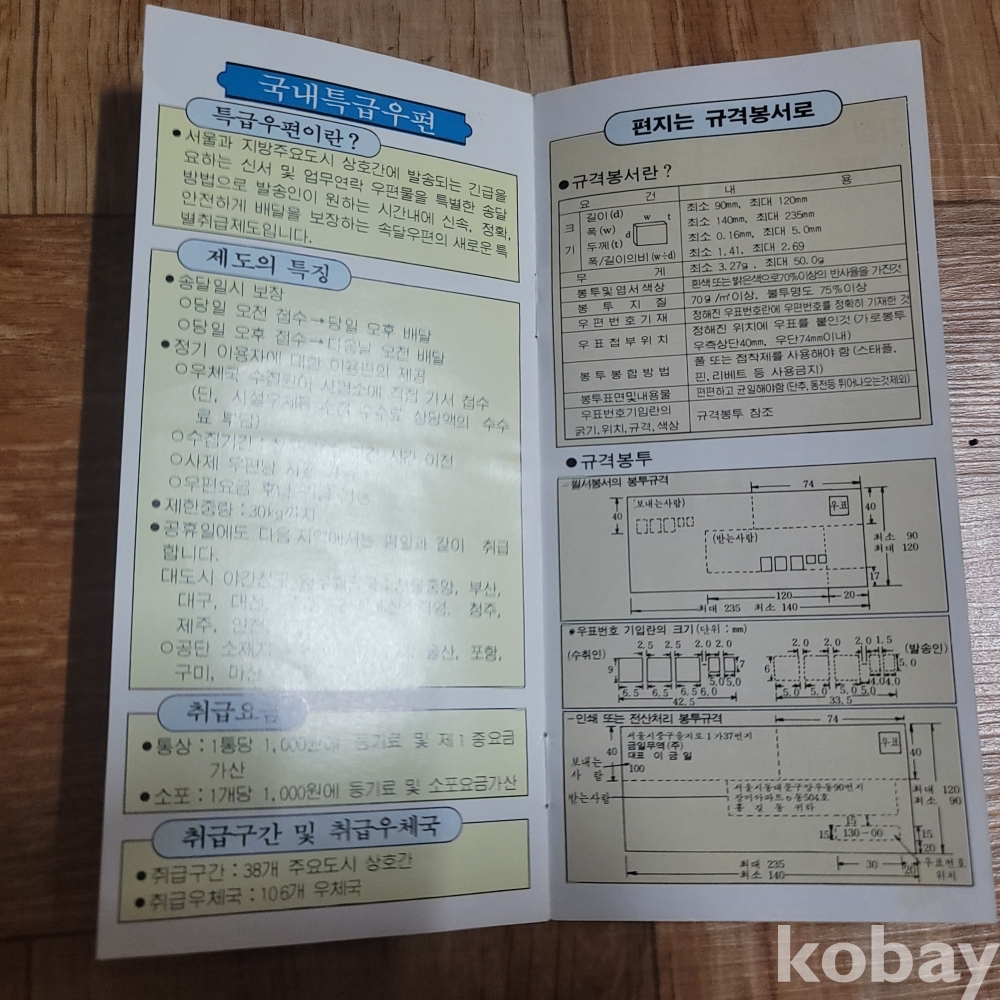 국내특급우편
특급우편이란?
●서울과 지방주요도시 상호간에 발송되는 긴급을
요하는 신서 및 업무연락 우편물을 특별한 송달
방법으로 발송인이 원하는 시간내에 신속, 정확,
안전하게 배달을 보장하는 속달우편의 새로운 특
별취급제도입니다.
제도의 특징
●송달일시 보장
○당일 오전 접수→당일 오후 배달
○당일 오후 접수→다음날 오전 배달
●정기 이용자에 대한 이용편의 제공
○우체국 수집원이 사업소에 직접 가서 접수
(단, 상당액의 수수
료 부담)
○수집기간 시간 이전
○사제 우편낭
○우편요금 후납
●제한중량 : 30kg까지
●공휴일에도 다음 지역에서는 평일과 같이 취급
합니다.
대도시 서울중앙, 부산,
대구, 청주,
제주,
○공단 소재지 울산, 포항,
구미, 마산
취급요금
●통상 : 1통당 1,000원에 등기료 및 제1종요금
가산
●소포 : 1개당 1,000원에 등기료 및 소포요금가산
취급구간 및 취급우체국
●취급구간 : 38개 주요도시 상호간
●취급우체국 : 106개 우체국
편지는 규격봉서로
●규격봉서란?
요 건 내 용
크기 길이(d) 최소 90mm, 최대 120mm
폭(w) 최소 140mm, 최대 235mm
두께(t) 최소 0.16mm, 최대 5.0mm
폭/길이의비(w÷d) 최소 1.41, 최대 2.69
w t
d
무 게 최소 3.27g, 최대 50.0g
봉투및엽서색상 흰색 또는 밝은색으로70%이상의 반사율을 가진것
봉 투 지 질 70g/㎡이상, 불투명도 75%이상
우편번호기재 정해진 우표번호란에 우편번호를 정확히 기재한 것
우표첩부위치 정해진 위치에 우표를 붙인것(가로봉투
우측상단40mm, 우단74mm이내)
봉투봉합방법 풀 또는 접착제를 사용해야 함(스태플,
핀,리베트 등 사용금지)
봉투표면및내용물 편편하고 균일해야함(단추,동전등 튀어나오는것제외)
우표번호기입란의
굵기,위치,규격,색상 규격봉투 참조
●규격봉투
–필서봉서의 봉투규격
74
40 보내는사람) 우표 40
(받는사람) 최소 90
최대 120
17
120 20
최대 235 최소 140
*우표번호 기입란의 크기(단위 : mm)
(수취인) 2.5 2.5 2.0 2.0 2.0 2.0 2.0 1.5 (발송인)
9 7 6 5.0
5.0 5.0 4.0 4.0
6.5 6.5 6.5 6.0 5.0 5.0 5.0 5.0
42.5 33.5
–인쇄 또는 전산처리 봉투규격
74
40 서울시중구을지로 1가37번지 우표 40
금일무역(주)
대표 이 금 일
보내는
사 람 100
받는사람 서울시동대문구망우동90번지
장미아파트 6동504호
홍 길 동 귀하
최대 120
최소 90
15
15 130-00 15
20
최대 235 30 20 우표번호
최소 140 위치
kobay